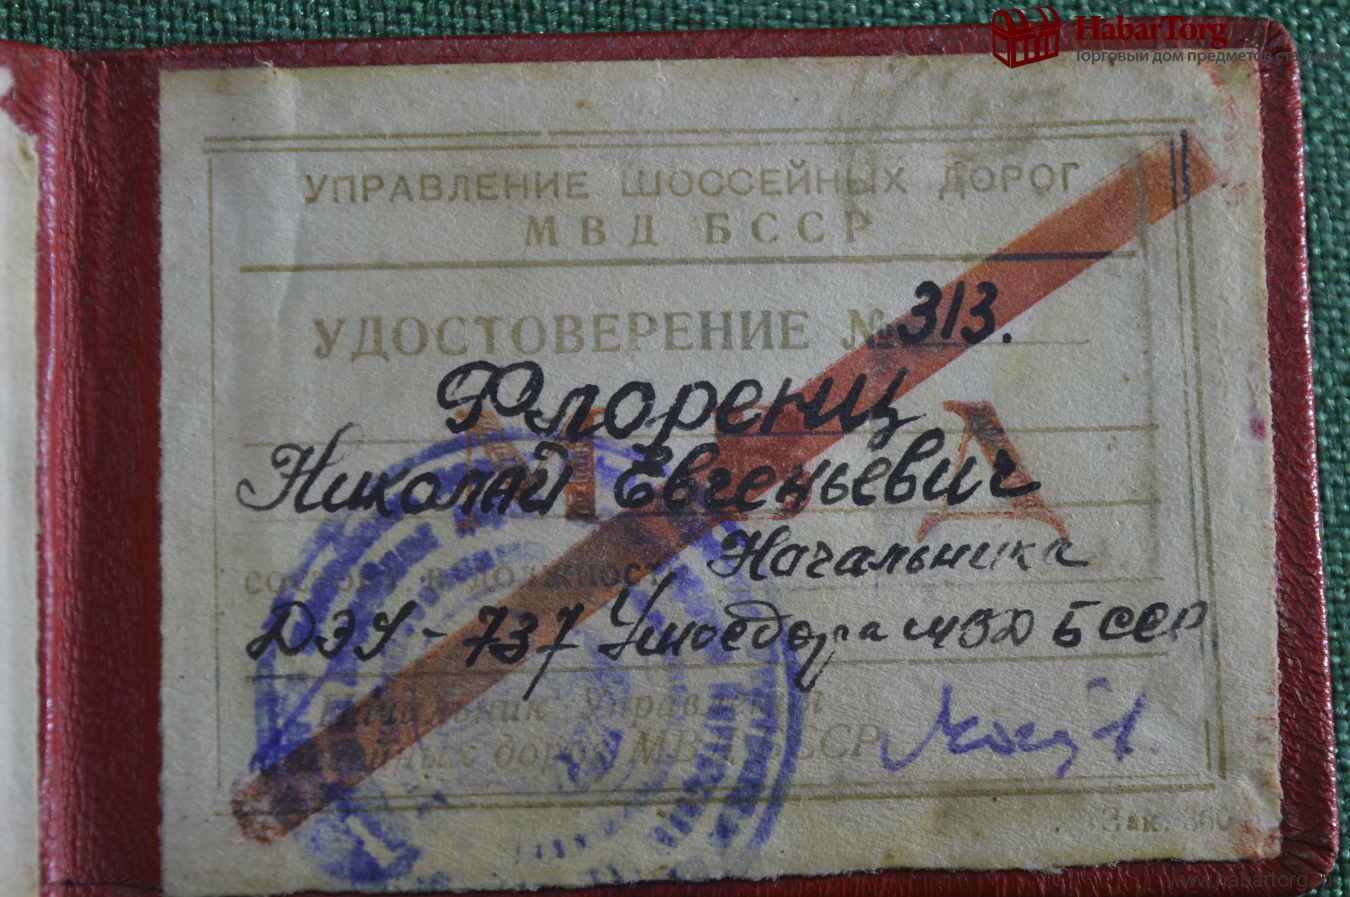 HabarTorg
Торговый дом предметов старины
УПРАВЛЕНИЕ ШОССЕЙНЫХ ДОРОГ
МВД БССР
УДОСТОВЕРЕНИЕ № 313.
Флоренц
Николай Евгеньевич
состоит в должности Начальника
ДЭУ-737 Ушосдора МВД БССР
Начальник Управления
шоссейных дорог МВД БССР
Зак. 360
www.habartorg.ru